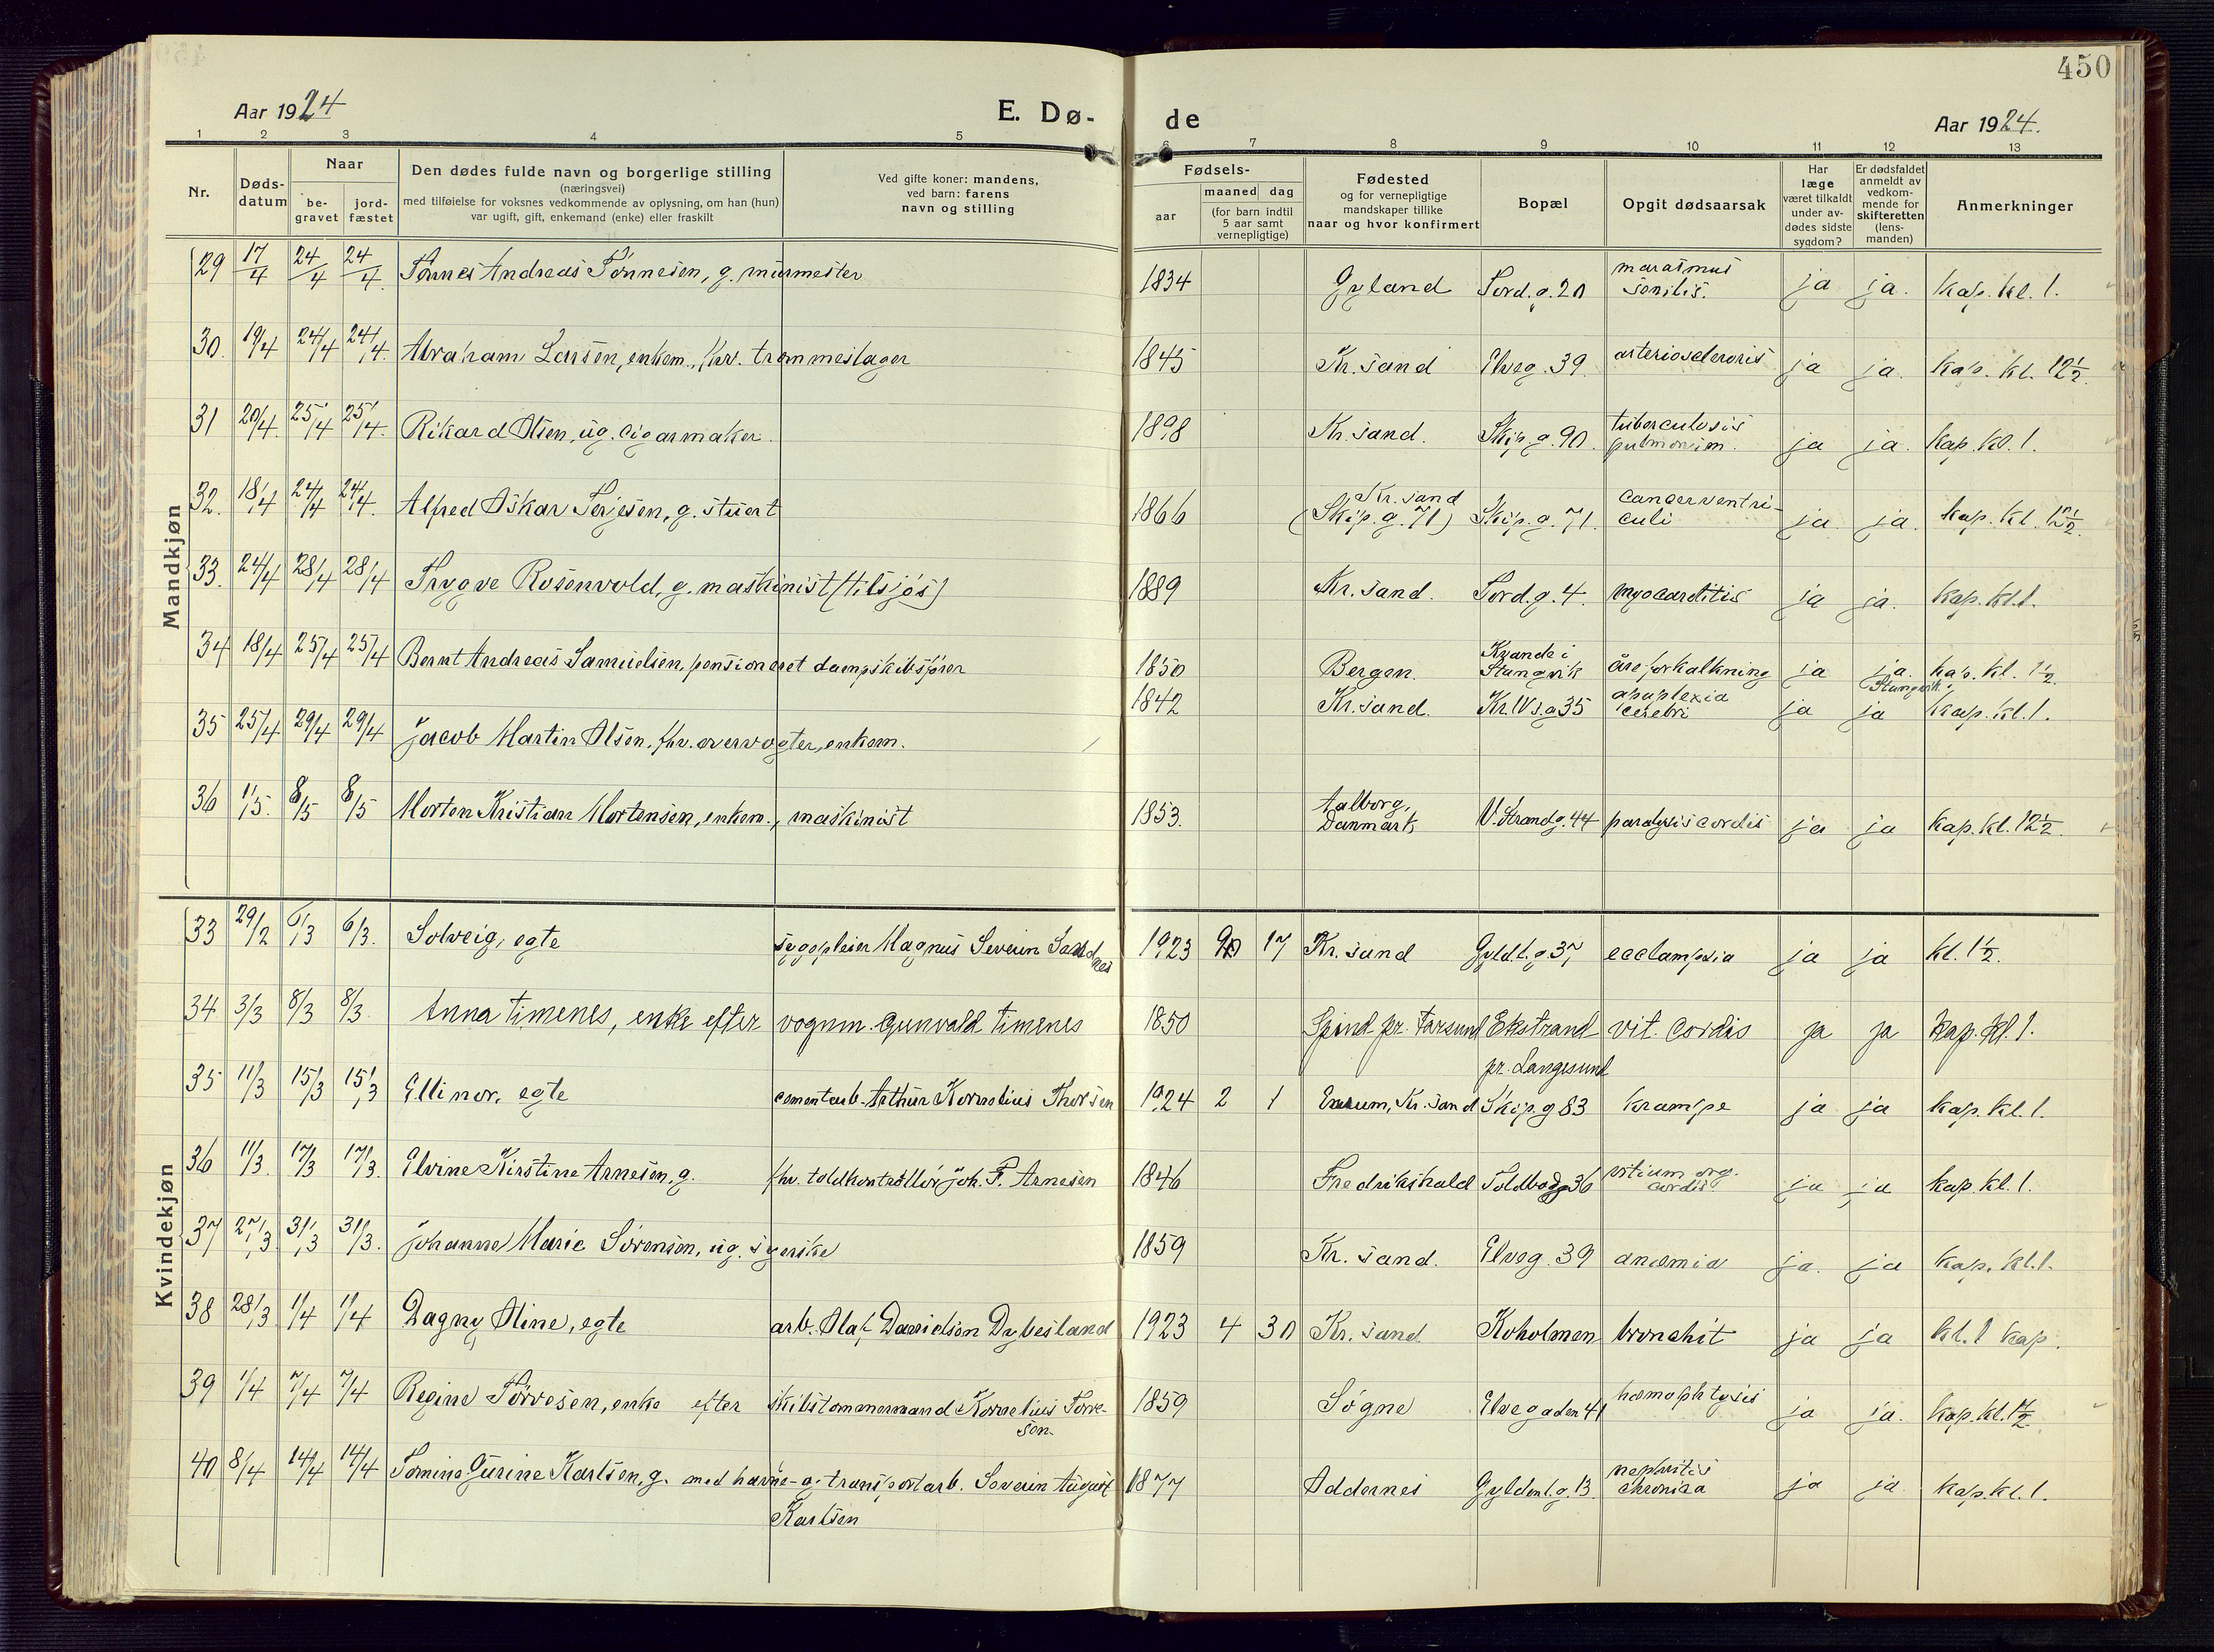 450
Aar 1924
E. Dø-
de
Aar 1924.
1 2 3 4 5 6 7 8 9 10 11 12 13
Nr.
Døds-
datum
Naar
be-
gravet
jord-
fæstet
Den dødes fulde navn og borgerlige stilling
(næringsvei)
med tilføielse for voksnes vedkommende av oplysning, om han (hun)
var ugift, gift, enkemand (enke) eller fraskilt
Ved gifte koner: mandens,
ved barn: farens
navn og stilling
Fødsels-
aar
maaned dag
(for barn indtil
5 aar samt
vernepligtige)
Fødested
og for vernepligtige
mandskaper tillike
naar og hvor konfirmert
Bopæl
Opgit dødsaarsak
Har
læge
været tilkaldt
under av-
dødes sidste
sygdom?
Er dødsfaldet
anmeldt av
vedkom-
mende for
skifteretten
(lens-
manden)
Anmerkninger
Mandkjøn
29 17/4 24/4 24/4. Tønnes Andreas Tønnesen, g. murmester 1834 Gyland Tord.g.20 marasmus senilis. ja ja. kap. kl. 1.
30. 19/4 24/4 24/4. Abraham Larsen, enkem., fhv. trommeslager 1845 Kr.sand Elveg.39. arteriosclerosis ja ja. kap. kl. 12½.
31 20/4. 25/4 25/4. Rikard Olsen, ug. cigarmaker. 1898 Kr.sand. Skip.g.90. tuberculosis pulmonum. ja ja. kap. kl. 1.
32. 18/4 24/4 24/4. Alfred Oskar Terjesen, g. stuert 1866 Kr.sand (Skip.g.71) Skip.g.71. cancer ventri-
culi ja ja. kap. kl. 12½.
33. 24/4 28/4 28/4 Trygve Rosenvold, g. maskinist (tilsjøs) 1889 Kr.sand. Tord.g.4. myocarditis ja ja. kap. kl. 1.
34 18/4 25/4 25/4 Bernt Andreas Samuelsen, pensioneret dampskibsfører 1850 Bergen. Kvande i Stangvik åreforkalkning ja ja. Stangvik. kap. kl. 1½.
35 25/4 29/4 29/4 Jacob Martin Olsen, fhv. overvogter, enkem. 1842 Kr.sand. Kr.IVs.g 35 apoplexia cerebri ja ja kap. kl. 1.
36 1/5. 8/5 8/5 Morten Kristian Mortensen, enkem., maskinist 1853. Aalborg, Danmark V.Strandg.44 paralysis cordis ja ja kap. kl. 12½.
Kvindekjøn
33 29/2 6/3 6/3. Solveig, egte sygepleier Magnus Severin Sandnes 1923 17 Kr.sand Gyldl.g.37 ecclampsia ja ja kl. 1½.
34 3/3 8/3 8/3 Anna Timenes, enke efter vognm. Gunvald Timenes 1850 Spind pr. Farsund Ekstrand pr. Langesund vit. cordis ja ja kap. kl. 1.
35 11/3 15/3 15/3 Ellinor, egte cementarb. Arthur Kornelius Thorsen 1924 2 1 Kr.sand Skip.g 83 krampe ja ja kap. kl. 1.
36 11/3. 17/3 17/3. Elvine Kirstine Arnesen, g. fhv. toldkontrollør Joh. F. Arnesen 1846 Fredrikshald Toldbodg 36 vitium org. cordis ja ja kap. kl. 1.
37 27/3 31/3 31/3. Johanne Marie Sørensen, ug. syerske 1859 Kr.sand. Elveg.39 anæmia ja. ja kap. kl. 1.
38 28/3 1/4 1/4 Dagny Oline, egte arb. Olaf Danielsen Dybesland 1923 4 30 Kr.sand Koholmen bronchit ja ja kl. 1 kap.
39 1/4 7/4 7/4 Regine Torvesen, enke efter skibstømmermand Kornelius Torve-
sen. 1859 Søgne Elvegaden 41 hæmophtysis ja ja. kap. kl. 1½
40 8/4 14/4 14/4 Tomine Gurine Karlsen, g. med havne- og transportarb. Severin August
Karlsen 1877 Oddernes Gyldenl.g.13 nephritis chronica ja ja kap. kl. 1.